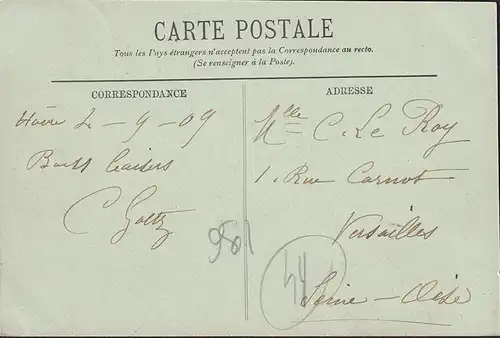 CARTE POSTALE
Tous les Pays étrangers n'acceptent pas la Correspondance au recto.
(Se renseigner à la Poste).
CORRESPONDANCE
Hâvre 4-9-09
baisers
C Goltz
ADRESSE
Mlle C. Le Roy
1. Rue Carnot
Versailles
Seine-Oise
44